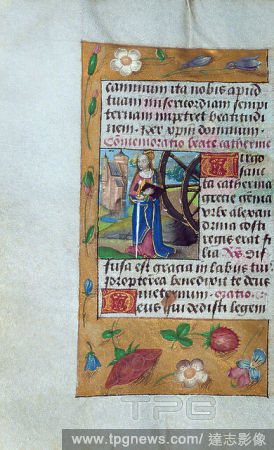 caminum ita nobis apud
tuam misericordiam sempi
ternam impetret beatitudi
nem. per xpm dominum.
Comemoratio beate catherine
Virgo
sancta catherina
grecie gema
urbe alexan
drina costi
regis erat fi
lia. Vs. Dif
fusa est gracia in labiis tuis
propterea benedixit te deus
in eternum. oratio.
Deus qui dedisti legem
TPG
www.tpgnews.com / 達志影像